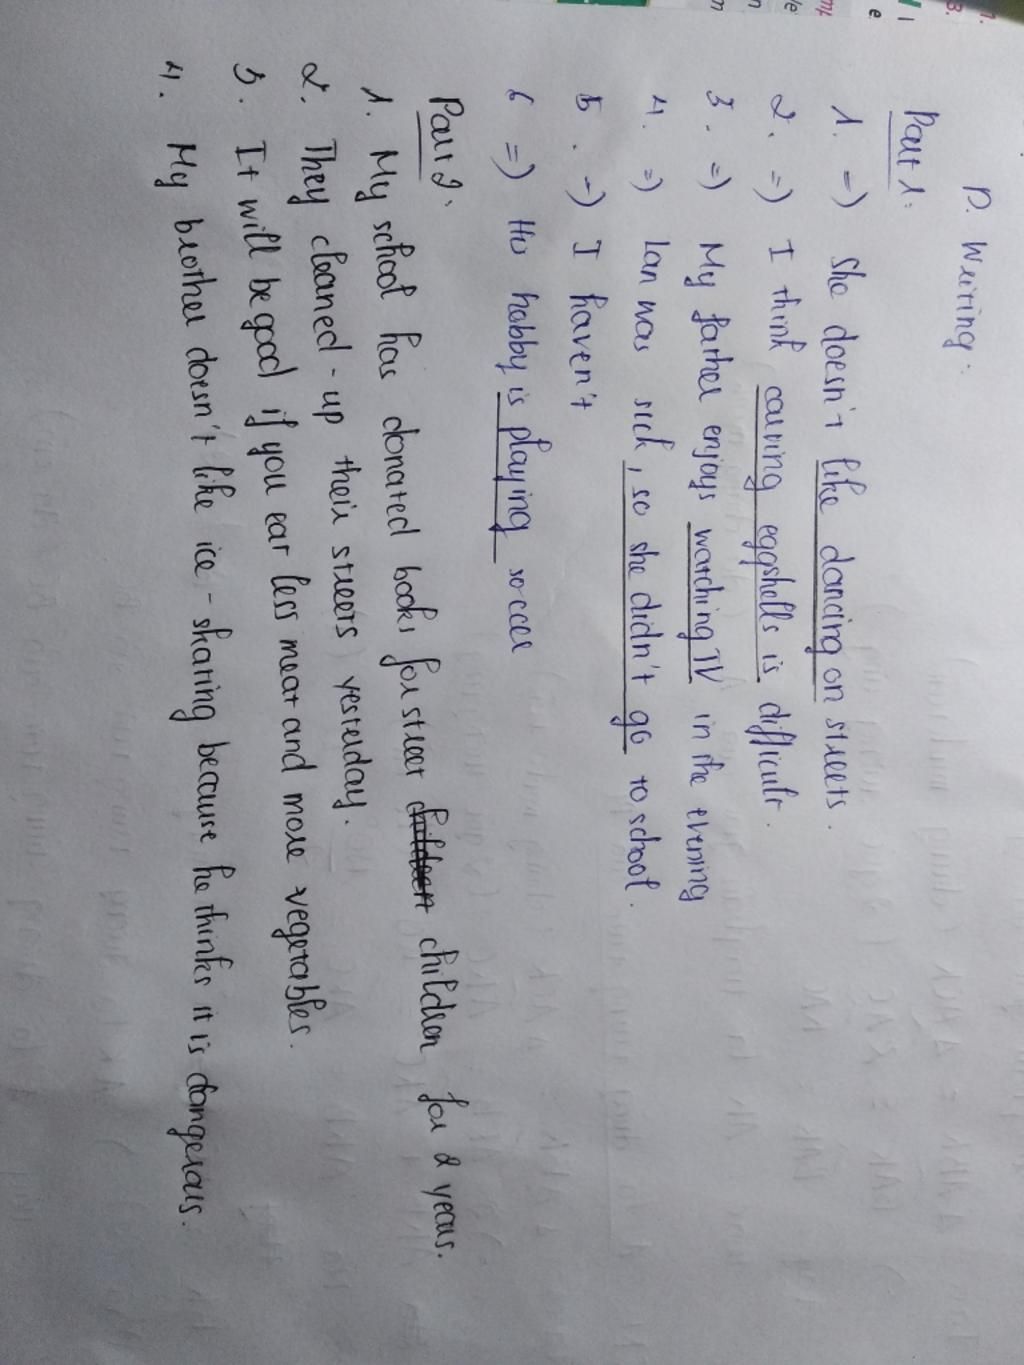 D. Writing:
Part 1:
1. => She doesn't like dancing on streets.
2. => I think carving eggshells is difficult.
3. => My father enjoys watching TV in the evening
4. => Lan was sick, so she didn't go to school.
5. -) I haven't
6 => His hobby is playing soccer
Part 2.
1. My school has donated books for street children children for 2 years.
2. They cleaned-up their streets yesterday.
3. It will be good if you eat less meat and more vegetables.
4. My brother doesn't like ice-skating because he thinks it is dangerous.